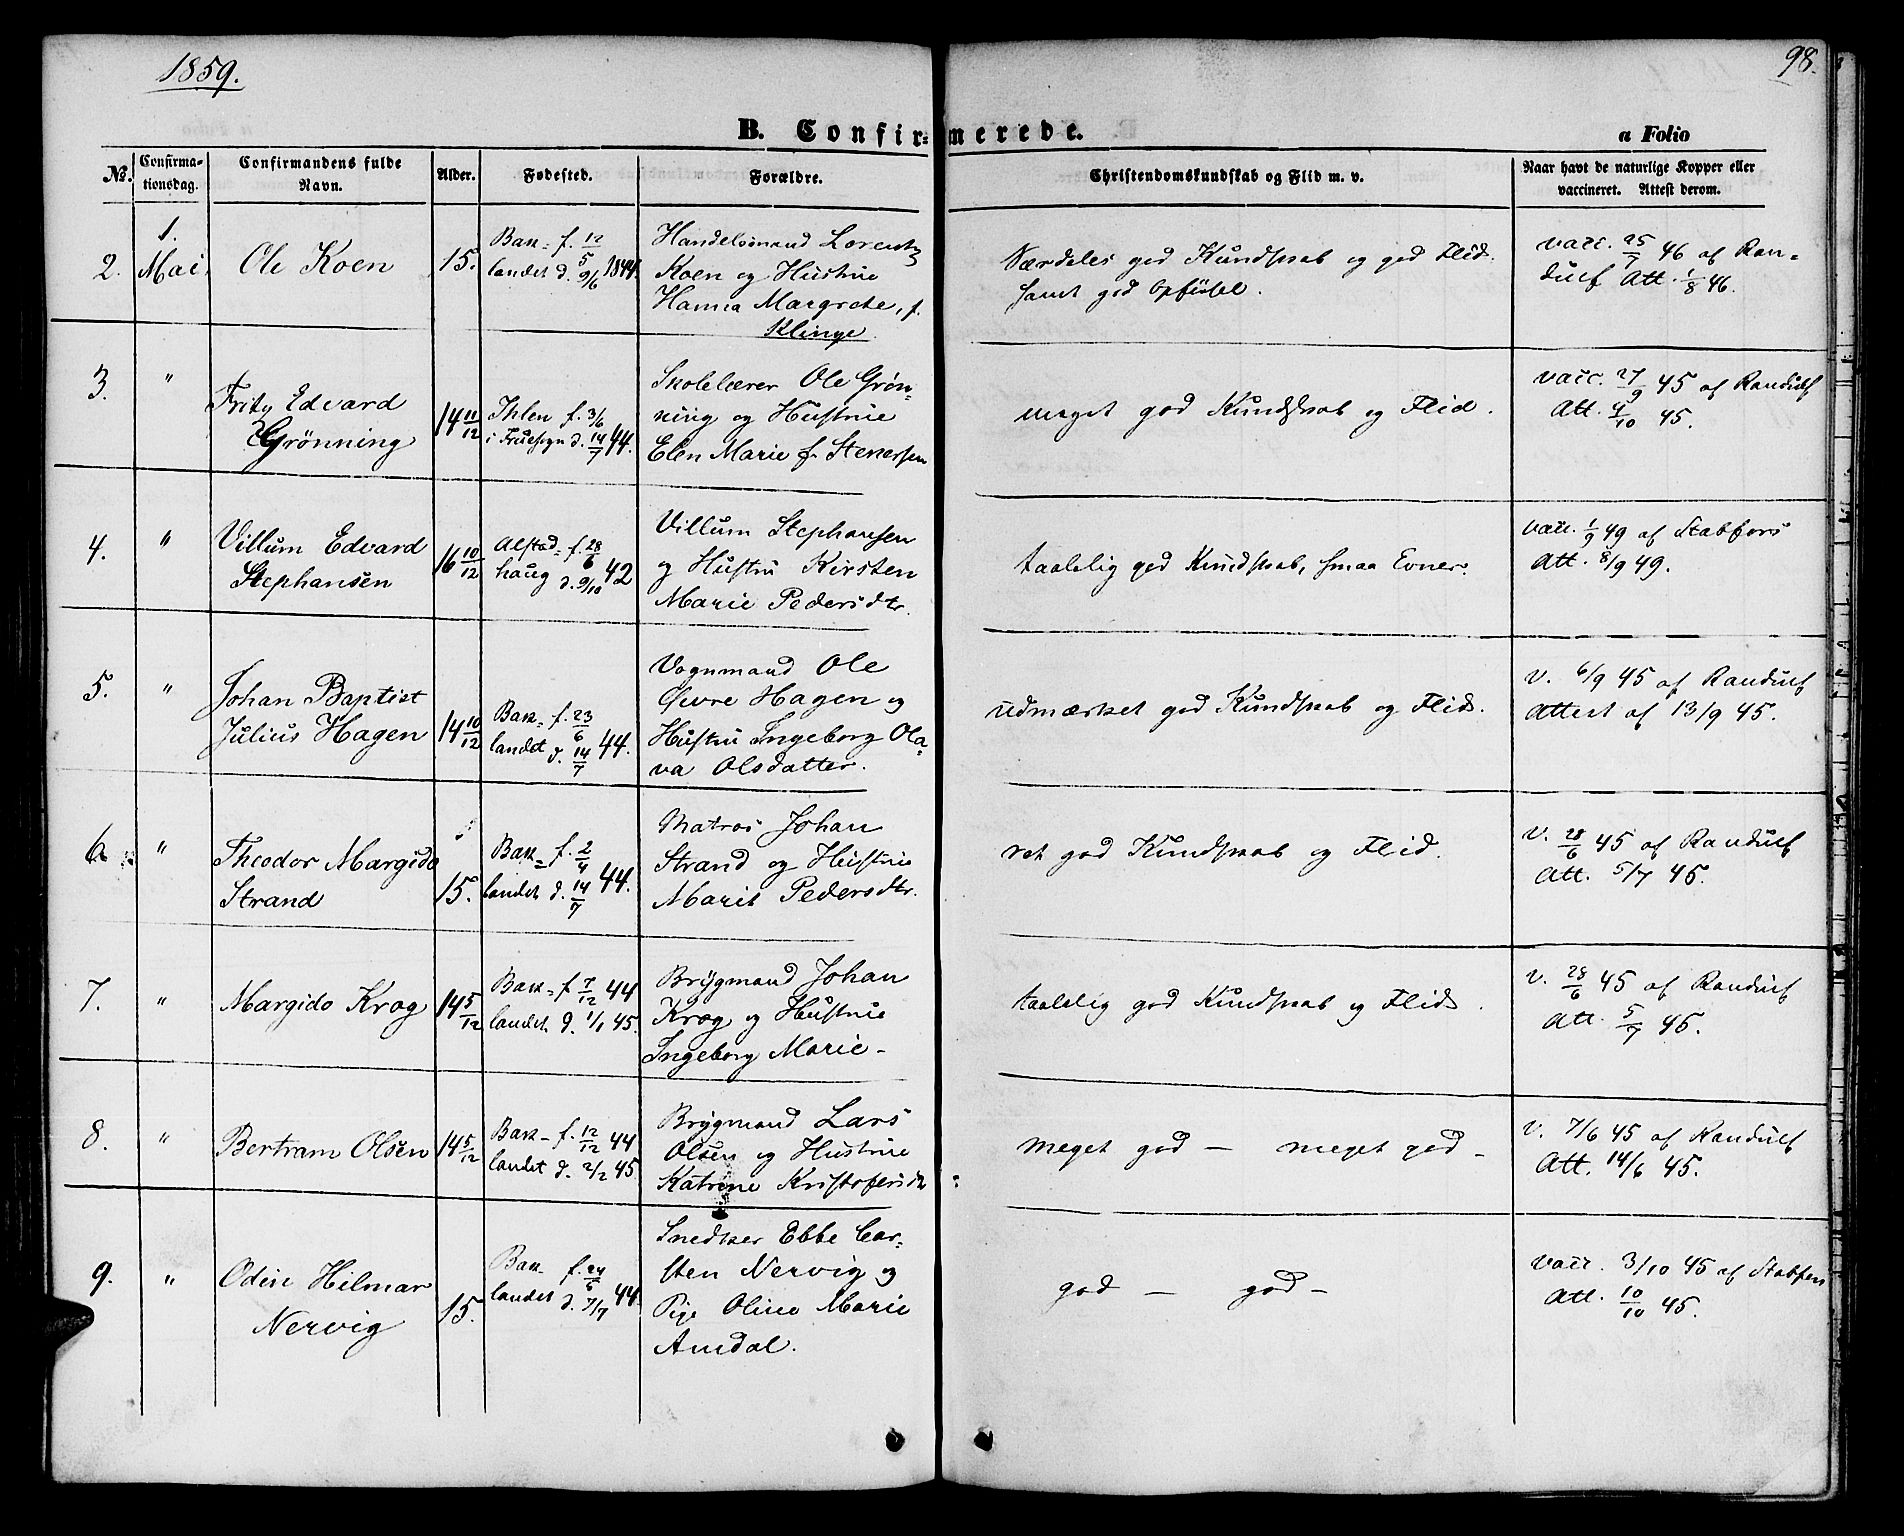 1859.
98.
B. Confirmerede.
a Folio
No.
Confirmationsdag.
Confirmandens fulde Navn.
Alder.
Fødested.
Forældre.
Christendomskundskab og Flid m. v.
Naar havt de naturlige Kopper eller vaccineret. Attest derom.
2.
1. Mai
Ole Koen
15.
Bak= f. 12/5
landet d. 9/6 1844.
Handelsmand Lorentz
Koen og Hustrue
Hanna Margrete, f.
Klinge
Særdeles god Kundskab og god Flid.
samt god Opførsel.
vacc. 25/7 46 af Ran=
dulf Att. 1/8 46.
3.
"
Fritz Edvard
Grönning
14 11/12
Ihlen f. 3/6
i Fruesogn d. 14/7 44.
Skolelærer Ole Grøn-
ning og Hustrue
Elen Marie f. Stenersen
meget god Kundskab og Flid.
vacc. 27/9 45 af Randulf
Att. 4/10 45.
4.
"
Villum Edvard
Stephansen
16 10/12
Alstad= f. 28/6
haug d. 9/10 42
Villum Stephansen
og Hustru Kirsten
Marie Pedersdtr.
taalelig god Kundskab, smaa Evner.
vacc. 1/9 49 af Stabfors
Att. 8/9 49.
5.
"
Johan Baptist
Julius Hagen
14 10/12
Bak= f. 23/6
landet d. 14/7 44.
Vognmand Ole
Øvre Hagen og
Hustru Ingeborg Ola=
va Olsdatter.
udmærket god Kundskab og Flid.
v. 6/9 45 af Randulf
Attest af 13/9 45.
6
"
Theodor Margido
Strand
15.
Bak= f. 2/4
landet d. 14/7 44.
Matros Johan
Strand og Hustrue
Marit Pedersdtr.
ret god Kundskab og Flid.
v. 28/6 45 af Randulf
Att. 5/7 45.
7.
"
Margido Krog
14 5/12
Bak= f. 7/12 44
landet d. 1/1 45.
Brygmand Johan
Krog og Hustrue
Ingeborg Marie-
taalelig god Kundskab og Flid.
v. 28/6 45 af Randulf
Att. 5/7 45.
8.
"
Bertram Olsen
14 5/12
Bak- f. 12/12 44
landet d. 2/2 45
Brygmand Lars
Olsen og Hustrue
Katrine Kristofersdtr
meget god — meget god -
v. 7/6 45 af Randulf
Att. 14/6 45.
9.
"
Odin Hilmar
Nervig
15.
Bak- f. 24/6
landet d. 7/7 44.
Snedker Ebbe Car=
sten Nervig og
Pige Oline Marie
Amdal.
god — god -
vacc. 3/10 45 af
Att. 10/10 45.